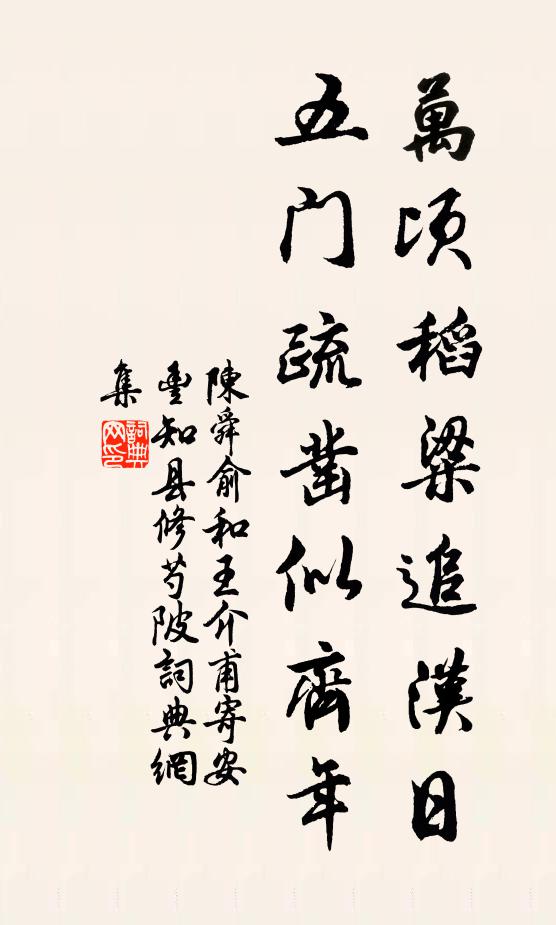 萬頃稻粱追漢日
五门疏凿似齊年
陳舜俞和王介甫寄安
豊知县修芍陂詞典網
集
詞典
网印